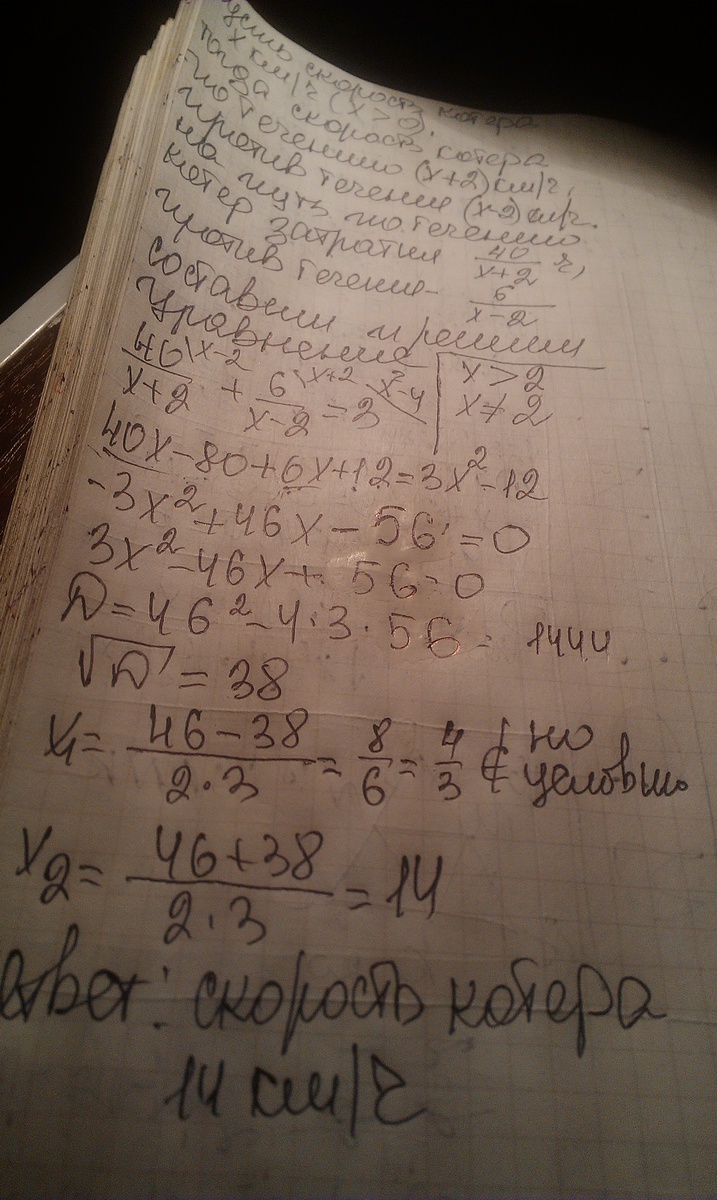 скорость катера
x км/ч (x>0),
тогда скорость катера
по течению (x+2) км/ч,
против течения (x-2) км/ч.
на путь по течению
катер затратил 40/(x+2) ч,
против течения- 6/(x-2)
составим и решим
уравнение
40\x-2/(x+2) + 6\x+2/(x-2) = 3\x²-4 | x>2 x≠2
40x-80+6x+12=3x²-12
-3x²+46x-56=0
3x²-46x+56=0
D=46²-4·3·56=1444.
√D=38
x₁= (46-38)/(2·3) = 8/6 = 4/3 ∉ по условию
x₂= (46+38)/(2·3) = 14
Ответ: скорость катера
14 км/ч